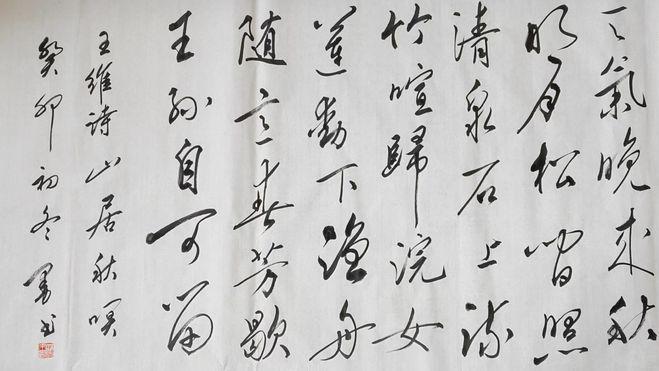 天氣晚来秋
明月松間照
清泉石上流
竹喧歸浣女
莲動下漁舟
随意春芳歇
王孫自可留
王維詩山居秋暝
癸卯初冬 书